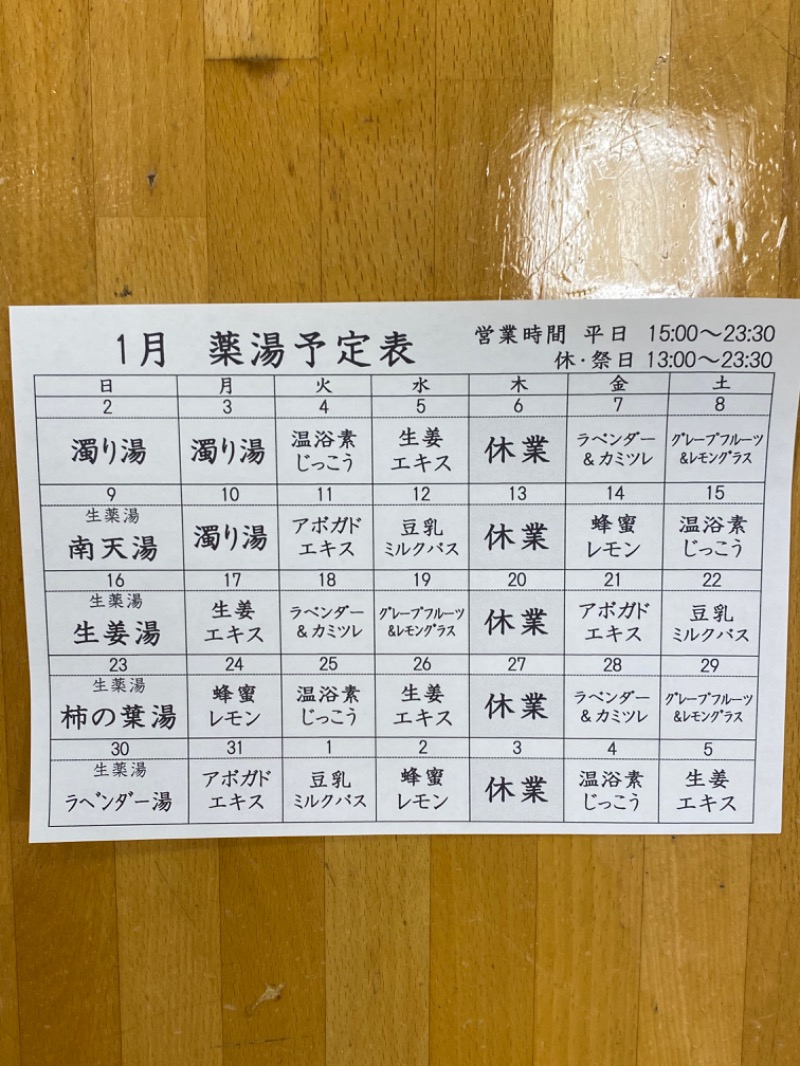 1月 薬湯予定表
営業時間 平日 15:00〜23:30
休・祭日 13:00〜23:30
日 月 火 水 木 金 土
2 3 4 5 6 7 8
濁り湯 濁り湯 温浴素 生姜 休業 ラベンダー グレープフルーツ
じっこう エキス &カミツレ &レモングラス
9 10 11 12 13 14 15
生薬湯
南天湯 濁り湯 アボガド 豆乳 休業 蜂蜜 温浴素
エキス ミルクバス レモン じっこう
16 17 18 19 20 21 22
生薬湯
生姜湯 生姜 ラベンダー グレープフルーツ 休業 アボガド 豆乳
エキス &カミツレ &レモングラス エキス ミルクバス
23 24 25 26 27 28 29
生薬湯
柿の葉湯 蜂蜜 温浴素 生姜 休業 ラベンダー グレープフルーツ
レモン じっこう エキス &カミツレ &レモングラス
30 31 1 2 3 4 5
生薬湯
ラベンダー湯 アボガド 豆乳 蜂蜜 休業 温浴素 生姜
エキス ミルクバス レモン じっこう エキス